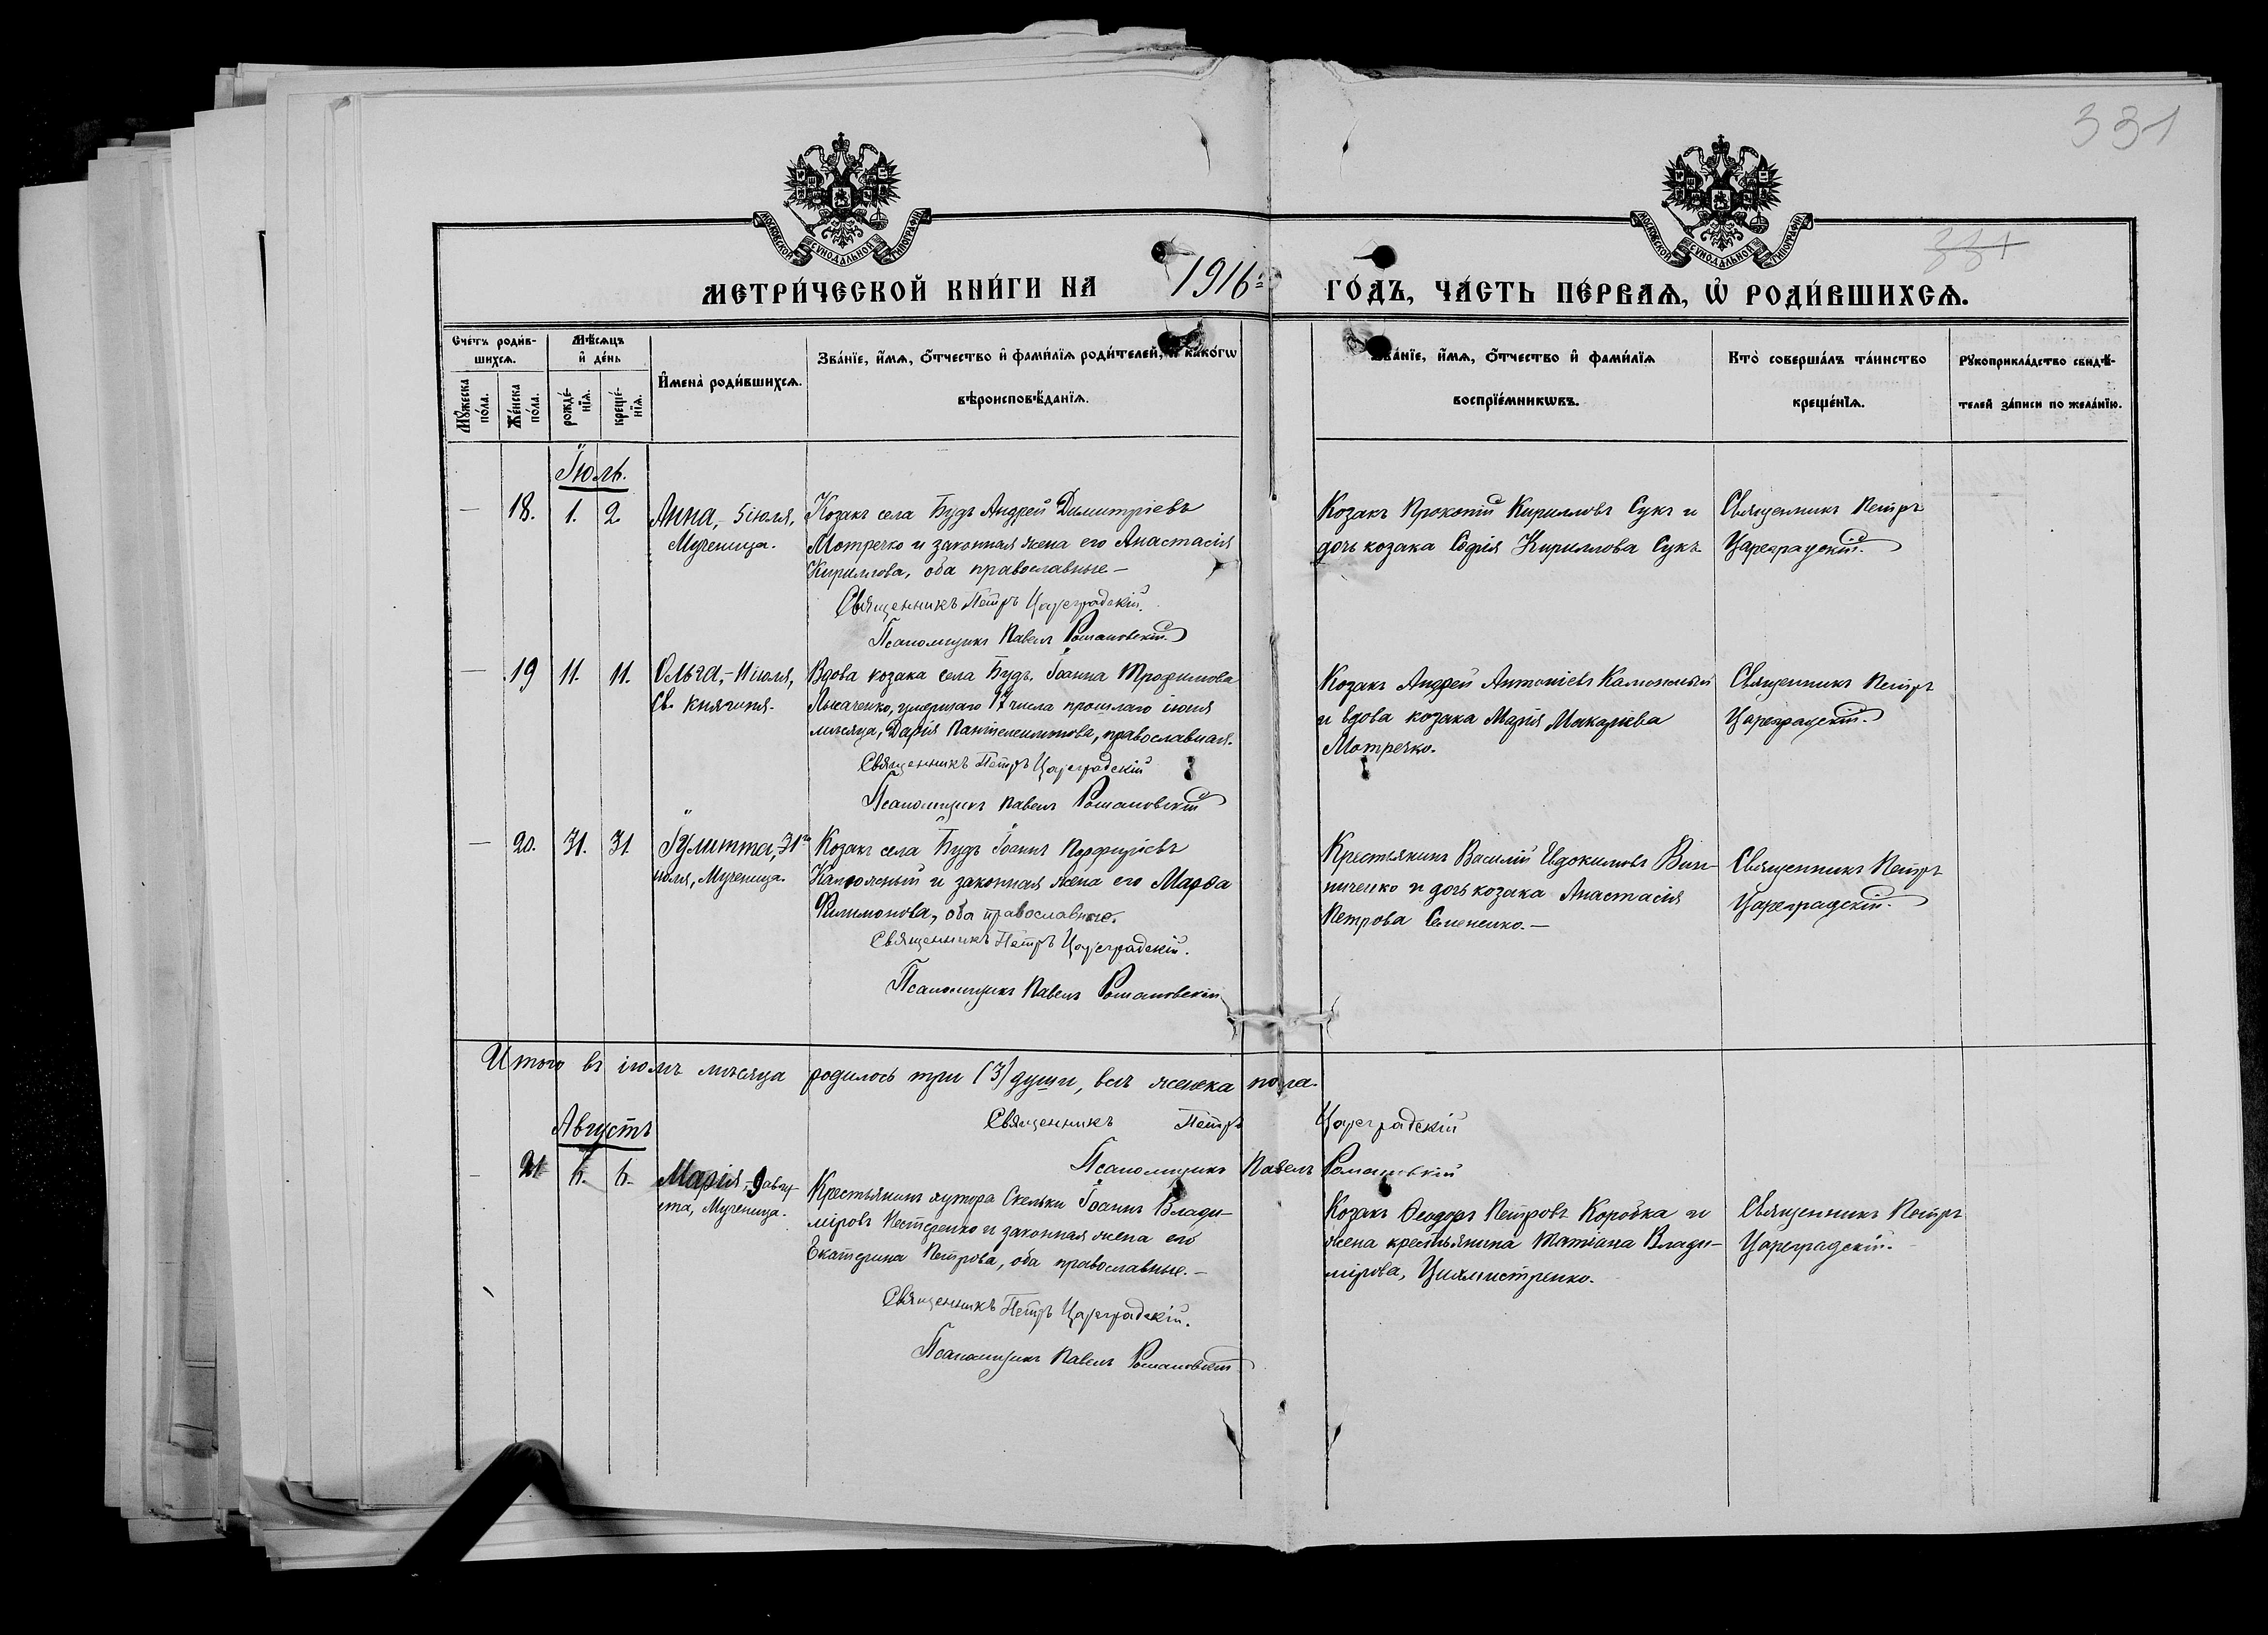 331
331
МОСКОВСКОЙ СѴНОДАЛЬНОЙ ТИПОГРАФІИ
МОСКОВСКОЙ СѴНОДАЛЬНОЙ ТИПОГРАФІИ
МЕТРИ́ЧЕСКОЙ КНИ́ГИ НА 1916 ГО́ДЪ, ЧА́СТЬ ПЕ́РВАѦ, Ѡ҆ РОДИ́ВШИХСѦ.
Сче́тъ роди́в-
шихсѧ.
Мѣ́сѧцъ
и҆ де́нь
Мꙋ́жеска
по́ла.
Же́нска
по́ла.
рожде́-
нїѧ.
креще́-
нїѧ.
И҆мена̀ роди́вшихсѧ.
Зва́нїе, и҆́мѧ, ѻ҆́тчество и҆ фами́лїѧ роди́телей, и҆ како́гѡ
вѣроисповѣ́данїѧ.
Зва́нїе, и҆́мѧ, ѻ҆́тчество и҆ фами́лїѧ
воспрїе́мникѡвъ.
Кто̀ соверша́лъ та́инство
креще́нїѧ.
Рꙋкоприкла́дство свидѣ́-
телей за́писи по жела́нїю.
Іюль.
— 18. 1. 2. Анна, 5 іюля,
Мученица.
Козакъ села Будъ Андрей Димитріевъ
Мотречко и законная жена его Анастасія
Кириллова, оба православные —
Священникъ Петръ Цареградскій.
Псаломщикъ Павелъ Романовскій
Козакъ Прокопій Кирилловъ Сукъ и
дочь козака Софія Кириллова Сукъ
Священникъ Петръ
Цареградскій.
— 19 11. 11. Ольга, - 11 іюля,
Св. Княгиня.
Вдова козака села Будъ Іоанна Трофимова
Лысаченко, умершаго 12 числа прошлаго іюня
мѣсяца, Дарія Пантелеимонова, православная.
Священникъ Петръ Цареградскій
Псаломщикъ Павелъ Романовскій
Козакъ Андрей Антоніевъ Каложный
и вдова козака Марія Макаріева
Мотречко.
Священникъ Петръ
Цареградскій.
— 20. 31. 31. Іулитта, 31го
іюля, Мученица.
Козакъ села Будъ Іоаннъ Порфиріевъ
Каложный и законная жена его Марѳа
Филимонова, оба православные.
Священникъ Петръ Цареградскій.
Псаломщикъ Павелъ Романовскій
Крестьянинъ Василій Евдокимовъ Вин-
ниченко и дочь козака Анастасія
Петрова Семененко. —
Священникъ Петръ
Цареградскій.
Итого въ іюлѣ мѣсяца родилось три (3) души, всѣ женска пола.
Священникъ Петръ Цареградскій
Псаломщикъ Павелъ Романовскій
Августъ
— 21 6. 6. Марія, - 9 авгу-
ста, Мученица.
Крестьянинъ хутора Скельки Іоаннъ Влади-
міровъ Нестеренко и законная жена его
Екатерина Петрова, оба православные. —
Священникъ Петръ Цареградскій.
Псаломщикъ Павелъ Романовскій
Козакъ Ѳеодоръ Петровъ Коробка и
жена крестьянина Татіана Влади-
мірова
Священникъ Петръ
Цареградскій.